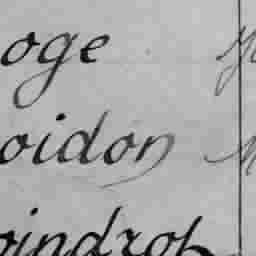 oge
oidon
oindrot